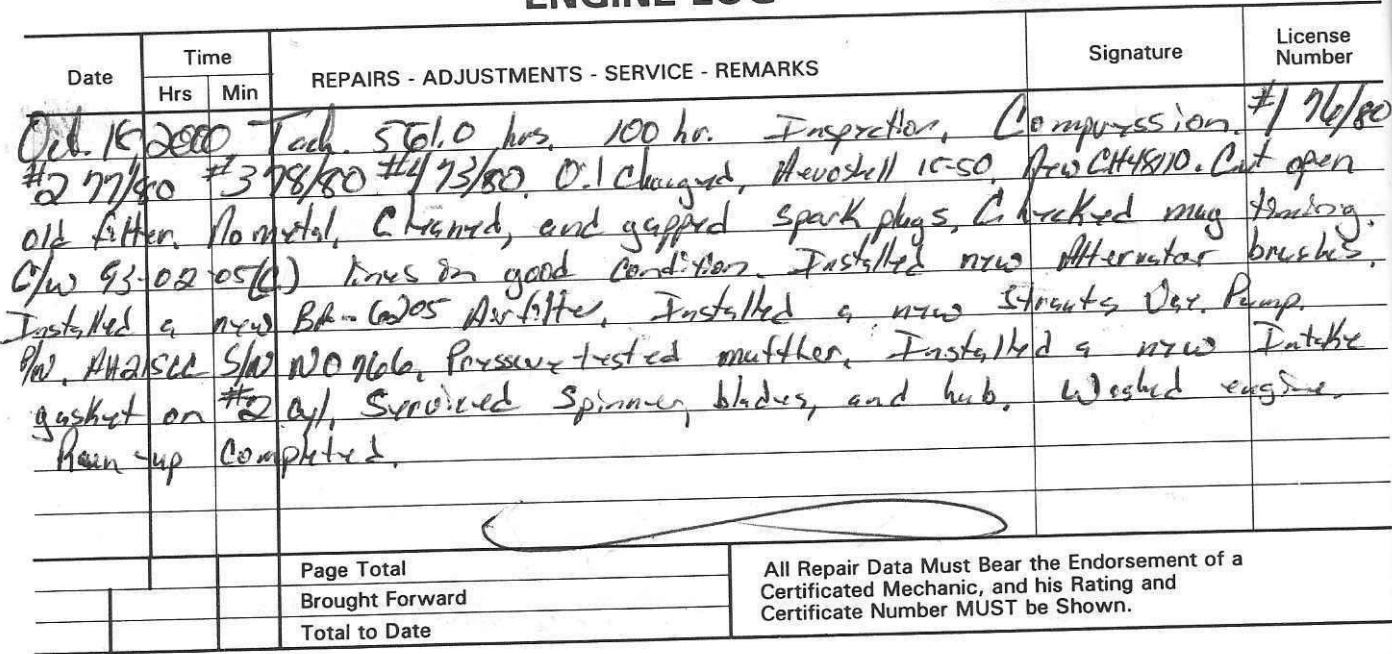 ENGINE LOG
Date Time Hrs Min REPAIRS - ADJUSTMENTS - SERVICE - REMARKS Signature License Number
Oct. 18 2000 Tach. 561.0 hrs. 100 hr. Inspection, Compression. #1 76/80
#2 77/80 #3 78/80 #4 73/80. Oil Changed, Aeroshell 15-50. New CH48110. Cut open
old filter. No metal, Cleaned, and gapped spark plugs, Checked mag timing.
C/W 93-02-05(C) lines in good condition. Installed new Alternator brushes,
Installed a new BA-6205 Airfilter, Installed a new Vac. Pump.
P/N. S/N NO766, Pressure tested muffler, Installed a new Intake
gasket on #2 cyl, Serviced Spinner, blades, and hub. Washed engine.
Run-up Completed.
Page Total
Brought Forward
Total to Date
All Repair Data Must Bear the Endorsement of a
Certificated Mechanic, and his Rating and
Certificate Number MUST be Shown.